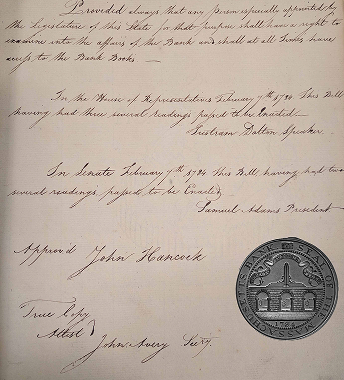 Provided always that any Person especially appointed by
the legislature of this State for that purpose shall have a right to
examine into the affairs of the Bank and shall at all Times have
access to the Bank Books —
In the House of Representatives February 7th 1784 This Bill
having had three several readings passed to be Enacted —
Tristram Dalton Speaker
In Senate February 7th 1784 This Bill, having had two
several readings passed to be Enacted
Samuel Adams President
Approv'd John Hancock
True Copy
Attest
John Avery Secry.
MASSACHUSETTS BANK SEAL OF THE
1784